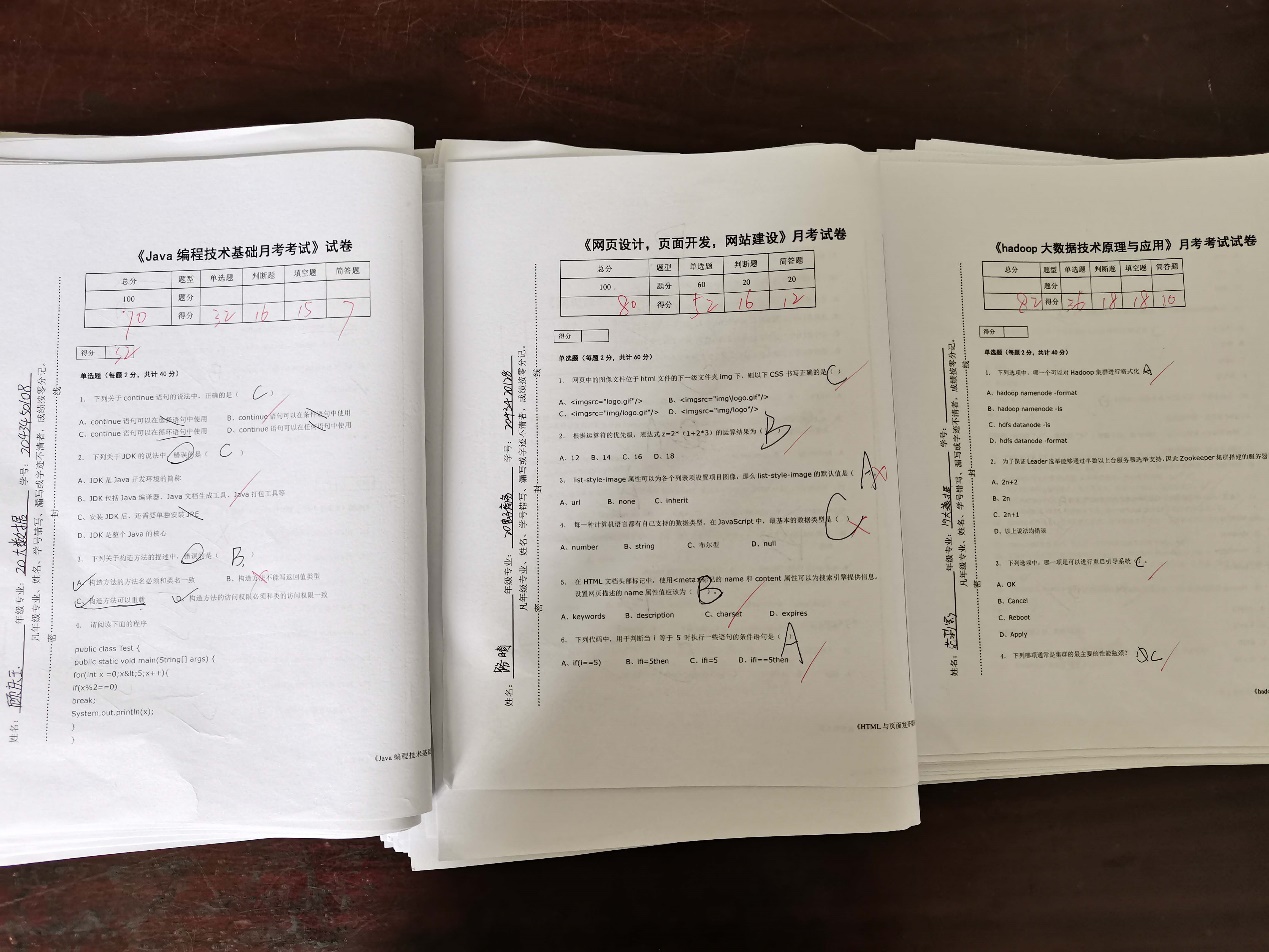 《Java 编程技术基础月考考试》试卷
总分 题型 单选题 判断题 填空题 简答题
100 题分
70 得分 32 16 15 7
得分 32
单选题（每题 2 分，共计 40 分）
1. 下列关于 continue 语句的说法中，正确的是（ C ）
A、continue 语句可以在选择语句中使用 B、continue 语句可以在条件语句中使用
C、continue 语句可以在循环语句中使用 D、continue 语句可以在任意语句中使用
2. 下列关于 JDK 的说法中，错误的是（ C ）
A、JDK 是 Java 开发环境的简称
B、JDK 包括 Java 编译器、Java 文档生成工具、Java 打包工具等
C、安装 JDK 后，还需要单独安装 JRE
D、JDK 是整个 Java 的核心
3. 下列关于构造方法的描述中，错误的是（ B ）
A、构造方法的方法名必须和类名一致 B、构造方法不能写返回值类型
C、构造方法可以重载 D、构造方法的访问权限必须和类的访问权限一致
4. 请阅读下面的程序
public class Test {
public static void main(String[] args) {
for(int x =0;x&lt;5;x++){
if(x%2==0)
break;
System.out.println(x);
}
}
《Java 编程技术基础
姓名： 年级专业：20大数据 学号：2043450108
凡年级专业、姓名、学号错写、漏写或字迹不清者，成绩按零分记。
密 封 线
《网页设计，页面开发，网站建设》月考试卷
总分 题型 单选题 判断题 简答题
100 题分 60 20 20
80 得分 52 16 12
得分
单选题（每题 2 分，共计 60 分）
1. 网页中的图像文件位于 html 文件的下一级文件夹 img 下，则以下 CSS 书写正确的是（ C ）
A、<imgsrc="logo.gif"/> B、<imgsrc="img\logo.gif"/>
C、<imgsrc="img/logo.gif"/> D、<imgsrc="img/logo"/>
2. 根据运算符的优先级，表达式 z=2*（1+2*3）的运算结果为（ B
A、12 B、14 C、16 D、18
3. list-style-image 属性可以为各个列表项设置项目图像，那么 list-style-image 的默认值是（ A
A、url B、none C、inherit
4. 每一种计算机语言都有自己支持的数据类型，在 JavaScript 中，最基本的数据类型是（ C
A、number B、string C、布尔型 D、null
5. 在 HTML 文档头部标记中，使用<meta>标记的 name 和 content 属性可以为搜索引擎提供信息，
设置网页描述的 name 属性值应该为（ B ）。
A、keywords B、description C、charset D、expires
6. 下列代码中，用于判断当 i 等于 5 时执行一些语句的条件语句是（ A
A、if(i==5) B、ifi=5then C、ifi=5 D、ifi==5then
《HTML 与页面开
姓名： 年级专业： 学号：
凡年级专业、姓名、学号错写、漏写或字迹不清者，成绩按零分记。
密 封 线
《hadoop 大数据技术原理与应用》月考考试试卷
总分 题型 单选题 判断题 填空题 简答题
题分
82 得分 36 18 18 10
得分
单选题（每题 2 分，共计 40 分）
1. 下列选项中，哪一个可以对 Hadoop 集群进行格式化 A
A、hadoop namenode -format
B、hadoop namenode -ls
C、hdfs datanode -ls
D、hdfs datanode -format
2. 为了保证 Leader 选举能够通过半数以上台服务器选举支持，因此 Zookeeper 集群搭建的服务器
A、2n+2
B、2n
C、2n+1
D、以上说法均错误
3. 下列选项中，哪一项是可以进行重启引导系统 C
A、OK
B、Cancel
C、Reboot
D、Apply
4. 下列哪项通常是集群的最主要的性能瓶颈？ C
《hado
姓名： 年级专业： 学号：
凡年级专业、姓名、学号错写、漏写或字迹不清者，成绩按零分记。
密 封 线